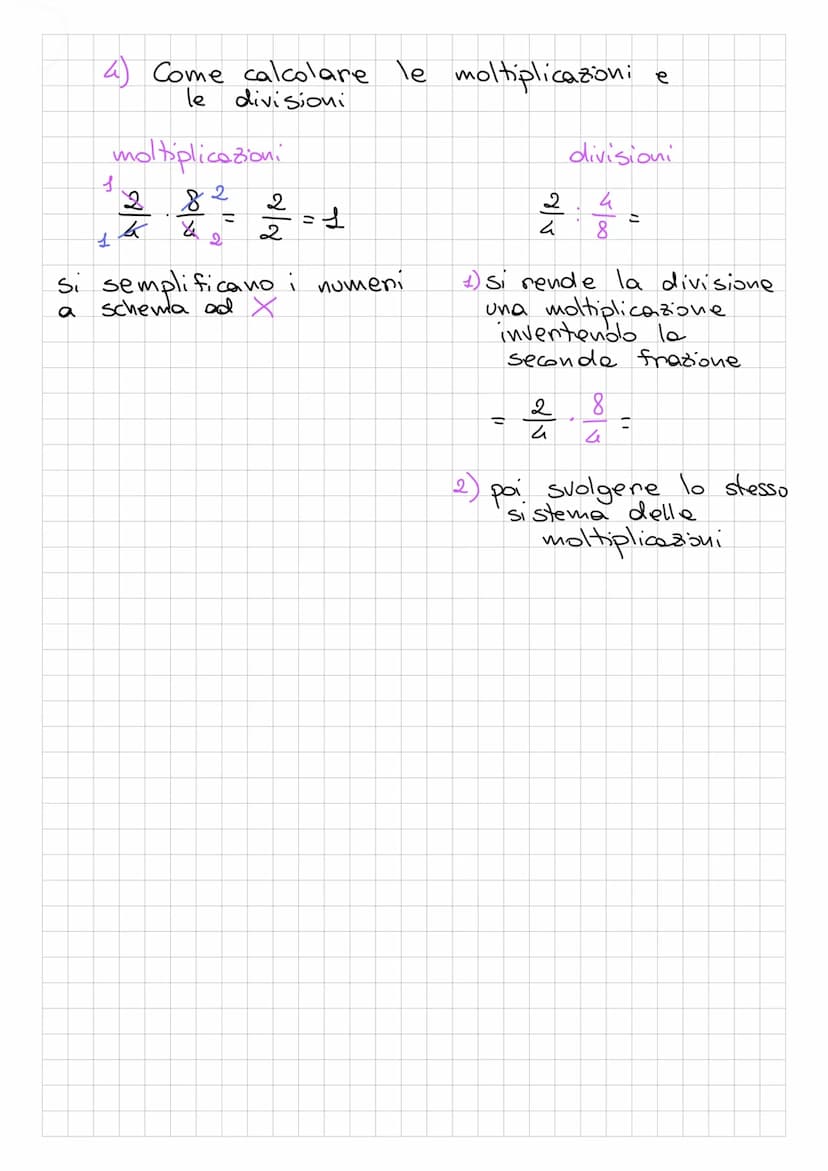 4) Come calcolare le moltiplicazioni e
le divisioni
moltiplicazioni
1 2/4 1 · 8/4 2 2 = 2/2 = 1
si semplificano i numeri
a schema ad X
divisioni
2/4 : 4/8 =
1) si rende la divisione
una moltiplicazione
invertendo la
seconda frazione
= 2/4 · 8/4 =
2) poi svolgere lo stesso
sistema delle
moltiplicazioni